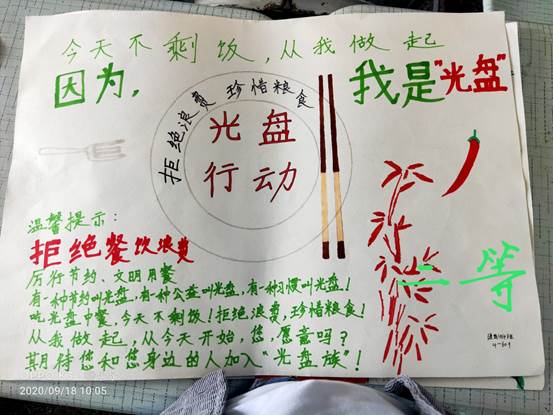 今天不剩饭，从我做起
因为，
我是"光盘"
拒绝浪费 珍惜粮食
光盘
行动
温馨提示：
拒绝餐饮浪费
厉行节约、文明用餐
有一种节约叫光盘，有一种公益叫光盘，有一种习惯叫光盘！
吃光盘中餐，今天不剩饭！拒绝浪费，珍惜粮食！
从我做起，从今天开始，您，愿意吗？
其月待您和您身边的人加入"光盘族"！
二等
2020/09/18 10:05